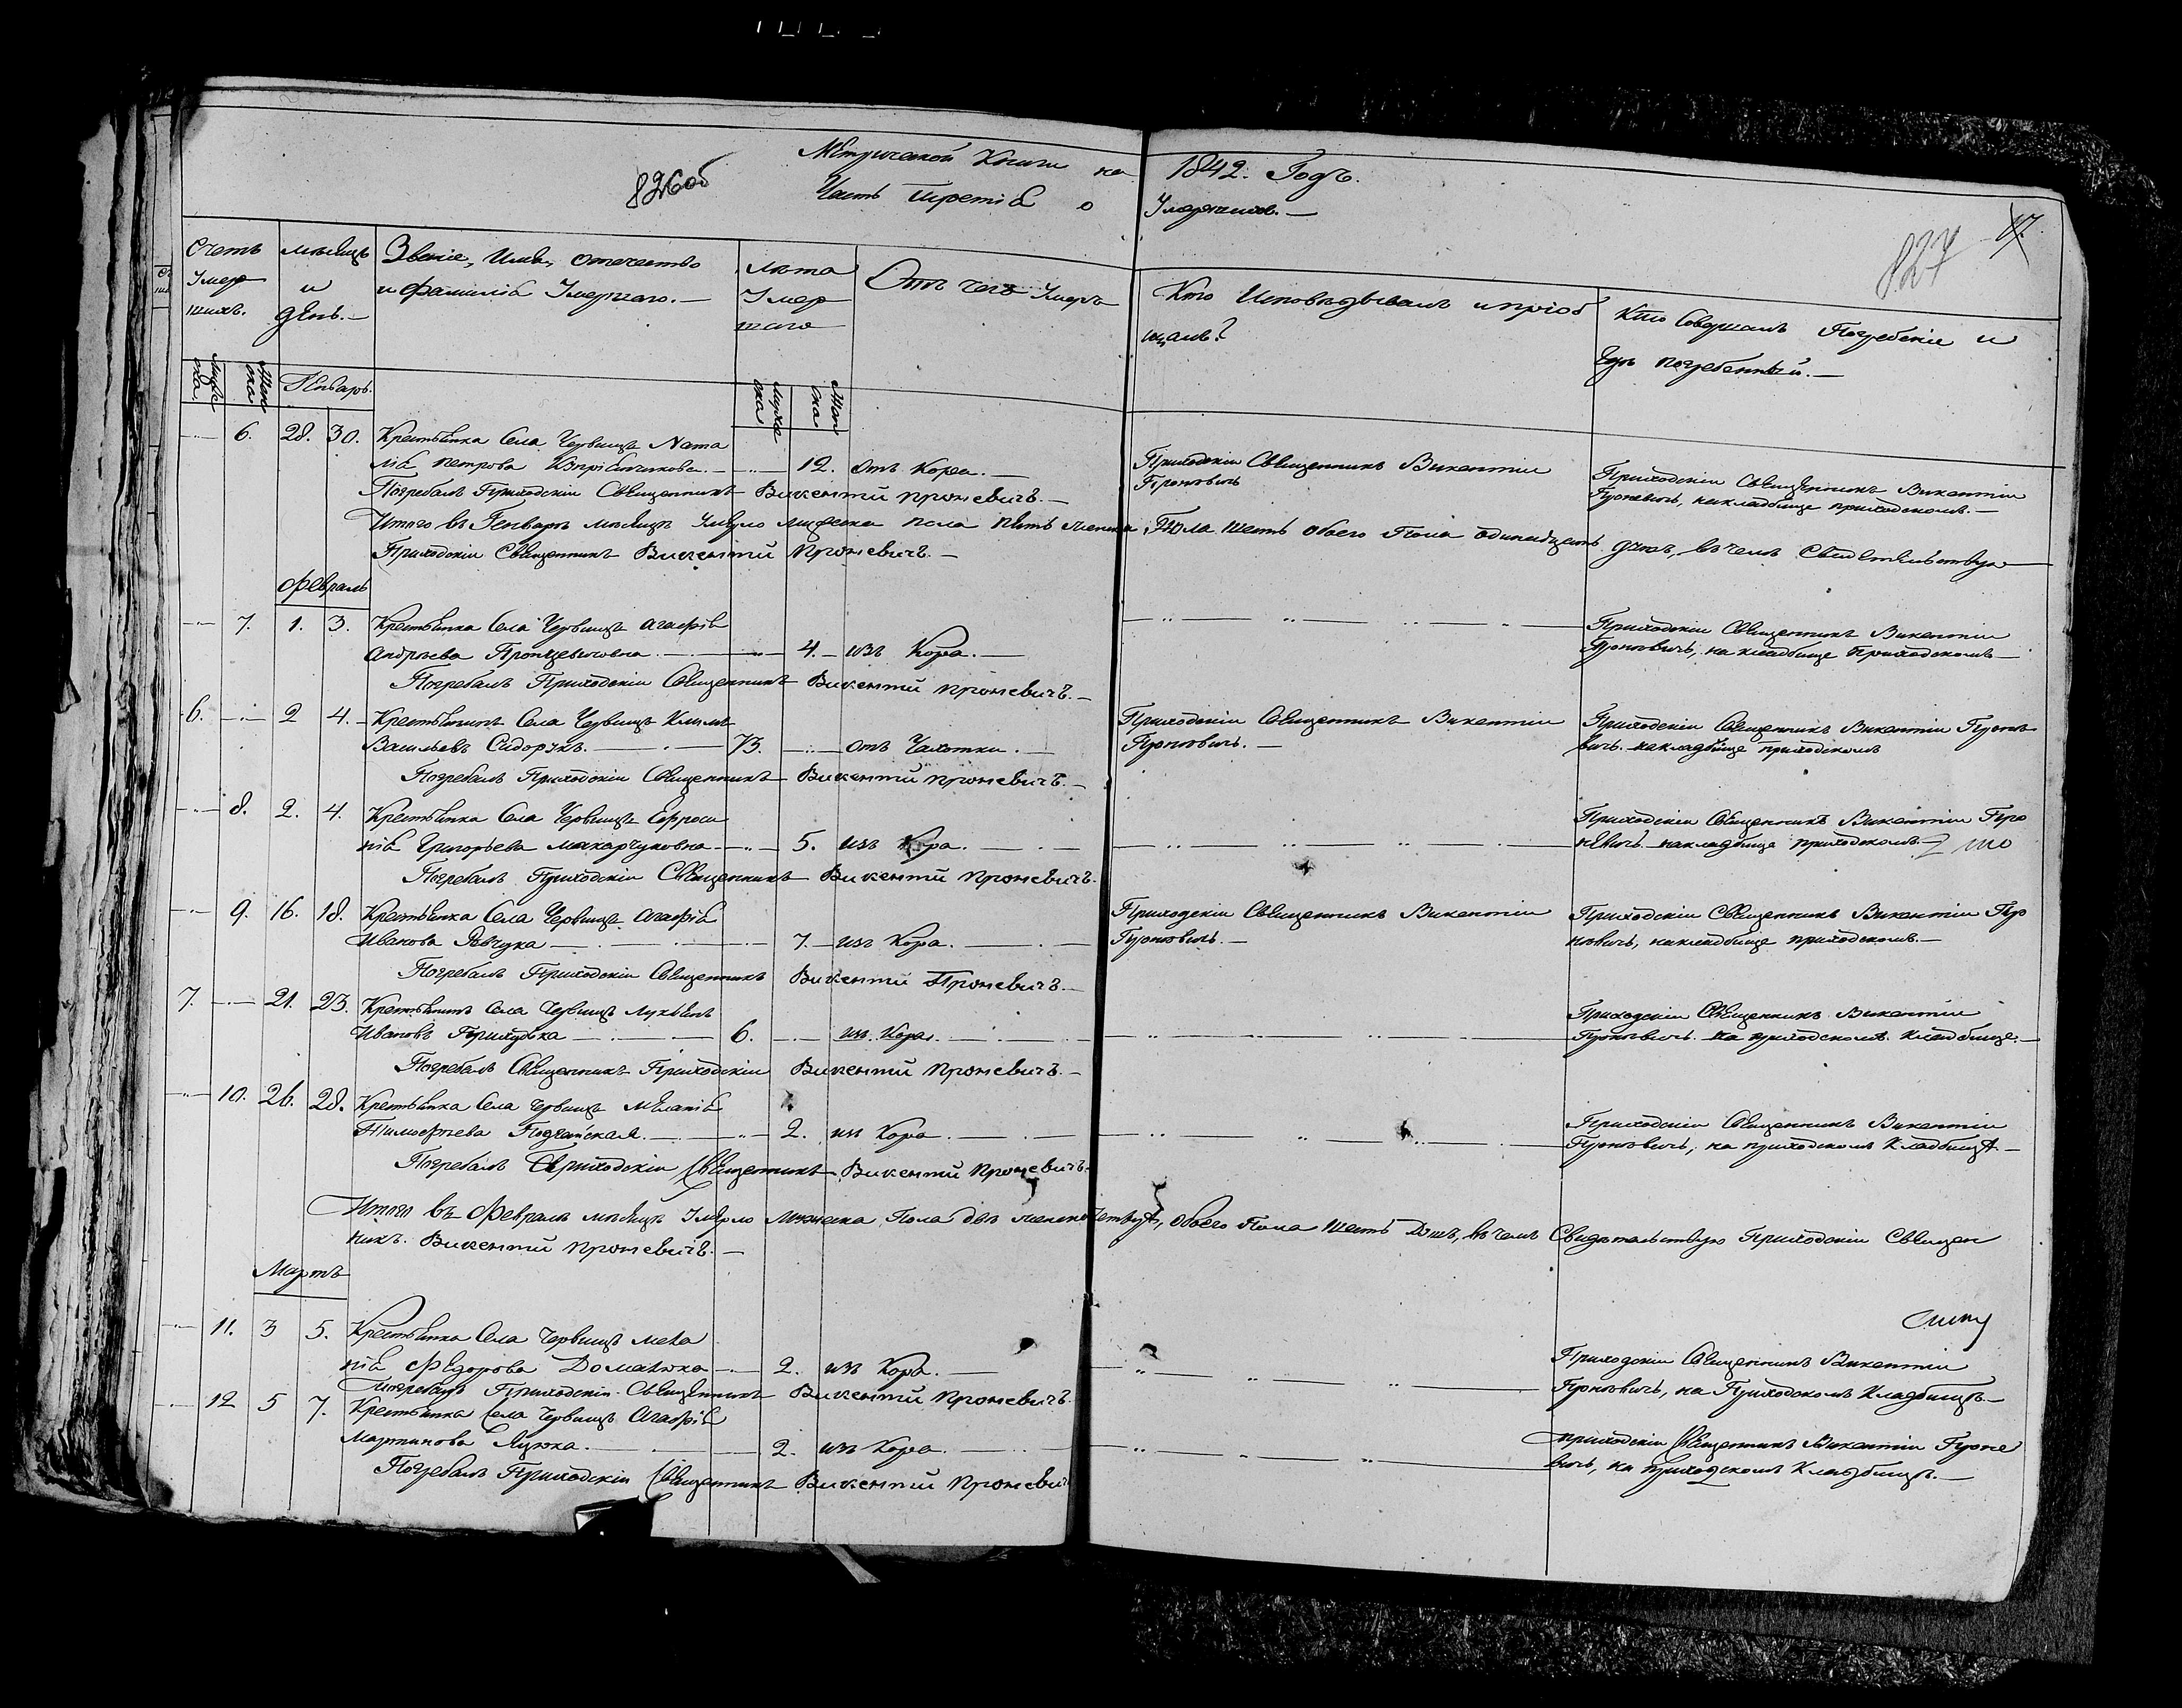 826об
Метрической Книги на 1842. Годъ.
Часть третія о Умершихъ. —
827
17.
Счетъ Умершихъ.
мѣсяцъ и день. —
Званіе, Имя, отечество
и фамилія Умершаго. —
Лѣта
Умер
шаго
Отъ чего Умеръ
Кто Исповѣдывалъ и пріоб
щалъ?
Кто Совершалъ Погребеніе и
гдѣ погребенный. —
Муже
ска
Жен
ска
Генварь.
Муже
ска
Жен
ска
6. 28. 30. Крестьянка Села Червищъ Ната
лія Петрова — 12. отъ Кора. —
Приходскій Священникъ Викентій
Проневичъ
Приходскій Священникъ Викентій
Проневичъ, накладбище приходскомъ. —
Погребалъ Приходскій Священникъ Викентій Проневичъ. —
Итого въ Генварѣ мѣсяцѣ Умерло мужеска пола пять женска Пола шесть обоего Пола одинадцать душъ, въ чемъ Свидетельствую
Приходскій Священникъ Викентій Проневичъ. —
Февраль
7. 1. 3. Крестьянка Села Червищъ Агафія
Андреева — 4. — изъ Кора. —
Приходскій Священникъ Викентій
Проневичъ, на кладбище Приходскомъ —
Погребалъ Приходскій Священникъ Викентій Проневичъ. —
6. 2 4. Крестьянинъ Села Червищъ Климъ
Васильевъ Сидорукъ. — 73. — отъ Чахотки. —
Приходскій Священникъ Викентій
Проневичъ. —
Приходскій Священникъ Викентій Проне
вичъ. накладбище приходскомъ
Погребалъ Приходскій Священникъ Викентій Проневичъ. —
8. 2. 4. Крестьянка Села Червищъ Ефроси
нія Григорьева Макарчуковна — 5. изъ Кора. —
Приходскій Священникъ Викентій Про
невичъ. накладбище приходскомъ. —
Погребалъ Приходскій Священникъ Викентій Проневичъ.
9. 16. 18. Крестьянка Села Червищъ Агафія
Иванова Ровчука — 7. — изъ Кора. —
Приходскій Священникъ Викентій
Проневичъ. —
Приходскій Священникъ Викентій Про
невичъ, накладбище приходскомъ. —
Погребалъ Приходскій Священникъ Викентій Проневичъ. —
7. 21. 23. Крестьянинъ Села Червищъ Лукьянъ
Ивановъ — 6. — изъ Кора. —
Приходскій Священникъ Викентій
Проневичъ. на приходскомъ кладбище. —
Погребалъ Священникъ Приходскій Викентій Проневичъ. —
10. 26. 28. Крестьянка Села Червищъ Меланія
Тимофѣева — 2. изъ Кора. —
Приходскій Священникъ Викентій
Проневичъ, на приходскомъ Кладбищѣ. —
Погребалъ Приходскій Священникъ Викентій Проневичъ.
Итого въ Февралѣ мѣсяцѣ Умерло Мужеска Пола два женска четыре, обоего Пола шесть Душъ, въ чемъ Свидѣтельствую Приходскій Священ
никъ. Викентій Проневичъ. —
Мартъ
11. 3 5. Крестьянка Села Червищъ Мела
нія Федорова Доманюка — 2. изъ Кора. —
Приходскій Священникъ Викентій
Проневичъ, на Приходскомъ Кладбищѣ —
Погребалъ Приходскій Священникъ Викентій Проневичъ.
12 5 7. Крестьянка Села Червищъ Агафія
Мартинова Яцюка. — 2. изъ Кора. —
приходскій Священникъ Викентій Проне
вичъ, на приходскомъ Кладбищѣ. —
Погребалъ Приходскій Священникъ Викентій Проневичъ